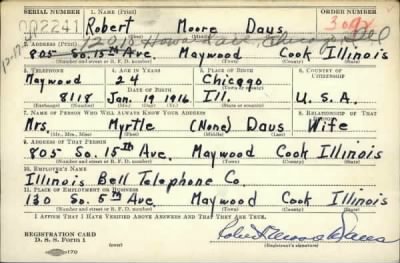 SERIAL NUMBER 1. NAME (Print) ORDER NUMBER
Robert Moore Daus 3092
2241
2. ADDRESS (Print)
805 So. 15th Ave. Maywood Cook Illinois
(Number and street or R. F. D. number) (Town) (County) (State)
3. TELEPHONE 4. AGE IN YEARS 5. PLACE OF BIRTH 6. COUNTRY OF CITIZENSHIP
Maywood 24 Chicago
DATE OF BIRTH (Town or county)
8118 Jan. 19 1916 Ill. U.S.A.
(Exchange) (Number) (Mo.) (Day) (Yr.) (State or country)
7. NAME OF PERSON WHO WILL ALWAYS KNOW YOUR ADDRESS 8. RELATIONSHIP OF THAT PERSON
Mrs. Myrtle (None) Daus Wife
(Mr., Mrs., Miss) (First) (Middle) (Last)
9. ADDRESS OF THAT PERSON
805 So. 15th Ave. Maywood Cook Illinois
(Number and street or R. F. D. number) (Town) (County) (State)
10. EMPLOYER'S NAME
Illinois Bell Telephone Co.
11. PLACE OF EMPLOYMENT OR BUSINESS
130 So. 5th Ave. Maywood Cook Illinois
(Number and street or R. F. D. number) (Town) (County) (State)
I AFFIRM THAT I HAVE VERIFIED ABOVE ANSWERS AND THAT THEY ARE TRUE.
REGISTRATION CARD
D. S. S. Form 1 (over) Robert Moore Daus
(Registrant's signature)